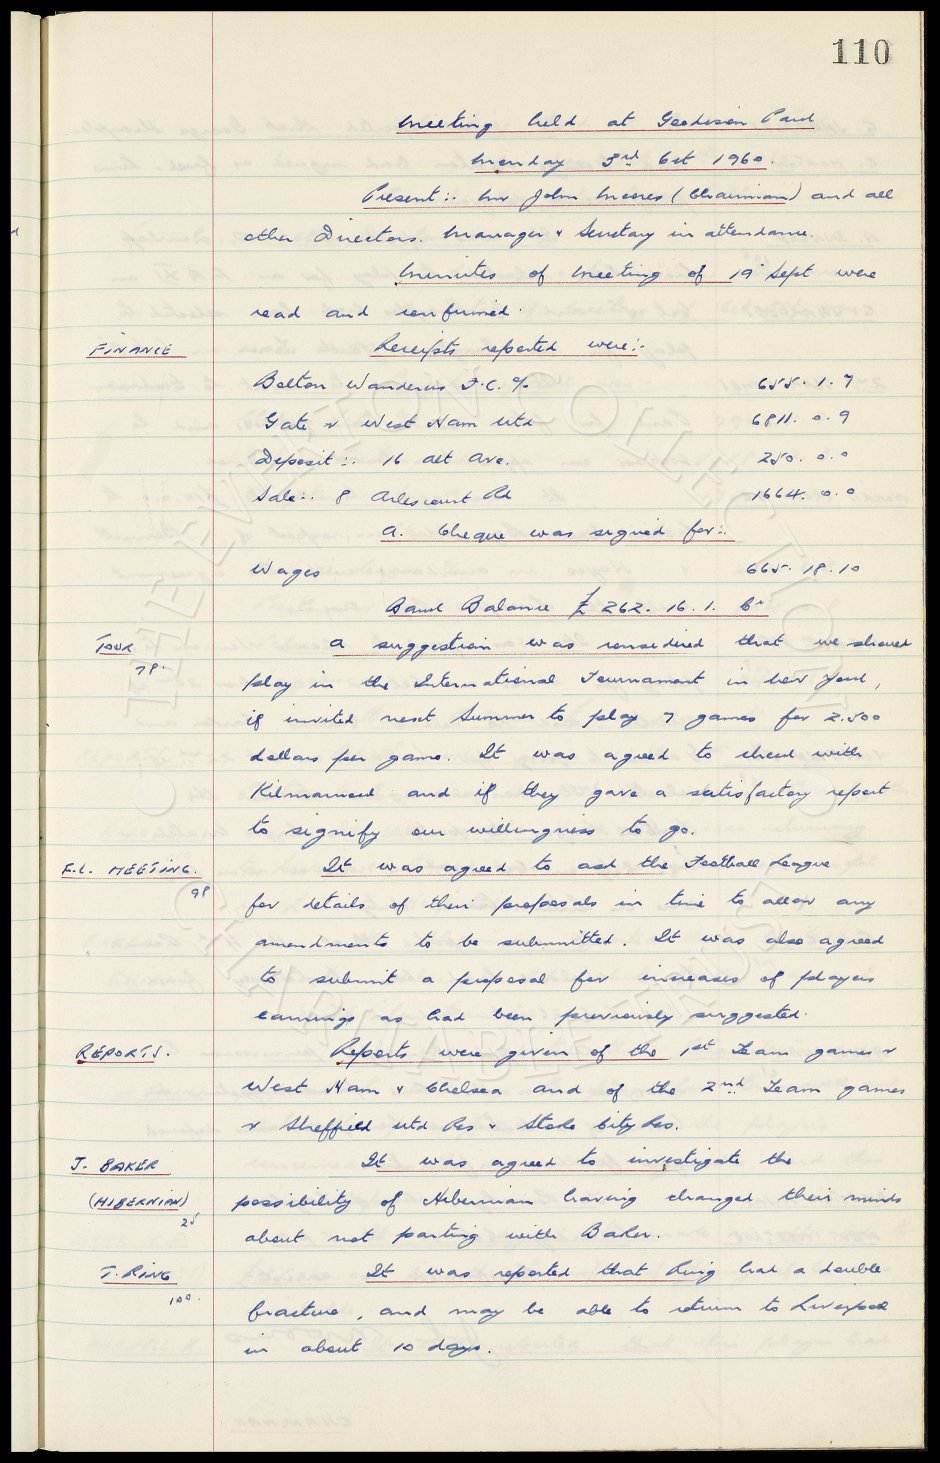 110
Meeting held at Goodison Park
Monday 3rd Oct 1960.
Present:- Mr John Moores (Chairman) and all
other Directors. Manager & Secretary in attendance.
Minutes of Meeting of 19th Sept were
read and confirmed.
FINANCE Receipts reported were:-
Bolton Wanderers F.C. % 655. 1. 7
Gate v West Ham Utd 6811. 0. 9
Deposit:- 16 Alt Ave. 250. 0. 0
Sale:- 8 Arlescourt Rd 1664. 0. 0
A. Cheque was signed for:-
Wages 665. 18. 10
Bank Balance £262. 16. 1. Cr
TOUR A suggestion was considered that we should
78. play in the International Tournament in New York,
if invited next Summer to play 7 games for 2.500
dollars per game. It was agreed to check with
Kilmarnock and if they gave a satisfactory report
to signify our willingness to go.
F.L. MEETING. It was agreed to ask the Football League
98 for details of their proposals in time to allow any
amendments to be submitted. It was also agreed
to submit a proposal for increases of players
earnings as had been previously suggested.
REPORTS. Reports were given of the 1st Team games v
West Ham & Chelsea and of the 2nd Team games
v Sheffield Utd Res & Stoke City Res.
J. BAKER It was agreed to investigate the
(HIBERNIAN) possibility of Hibernian having changed their minds
25 about not parting with Baker.
T. RING It was reported that Ring had a double
100. fracture, and may be able to return to Liverpool
in about 10 days.
THE EVERTON COLLECTION